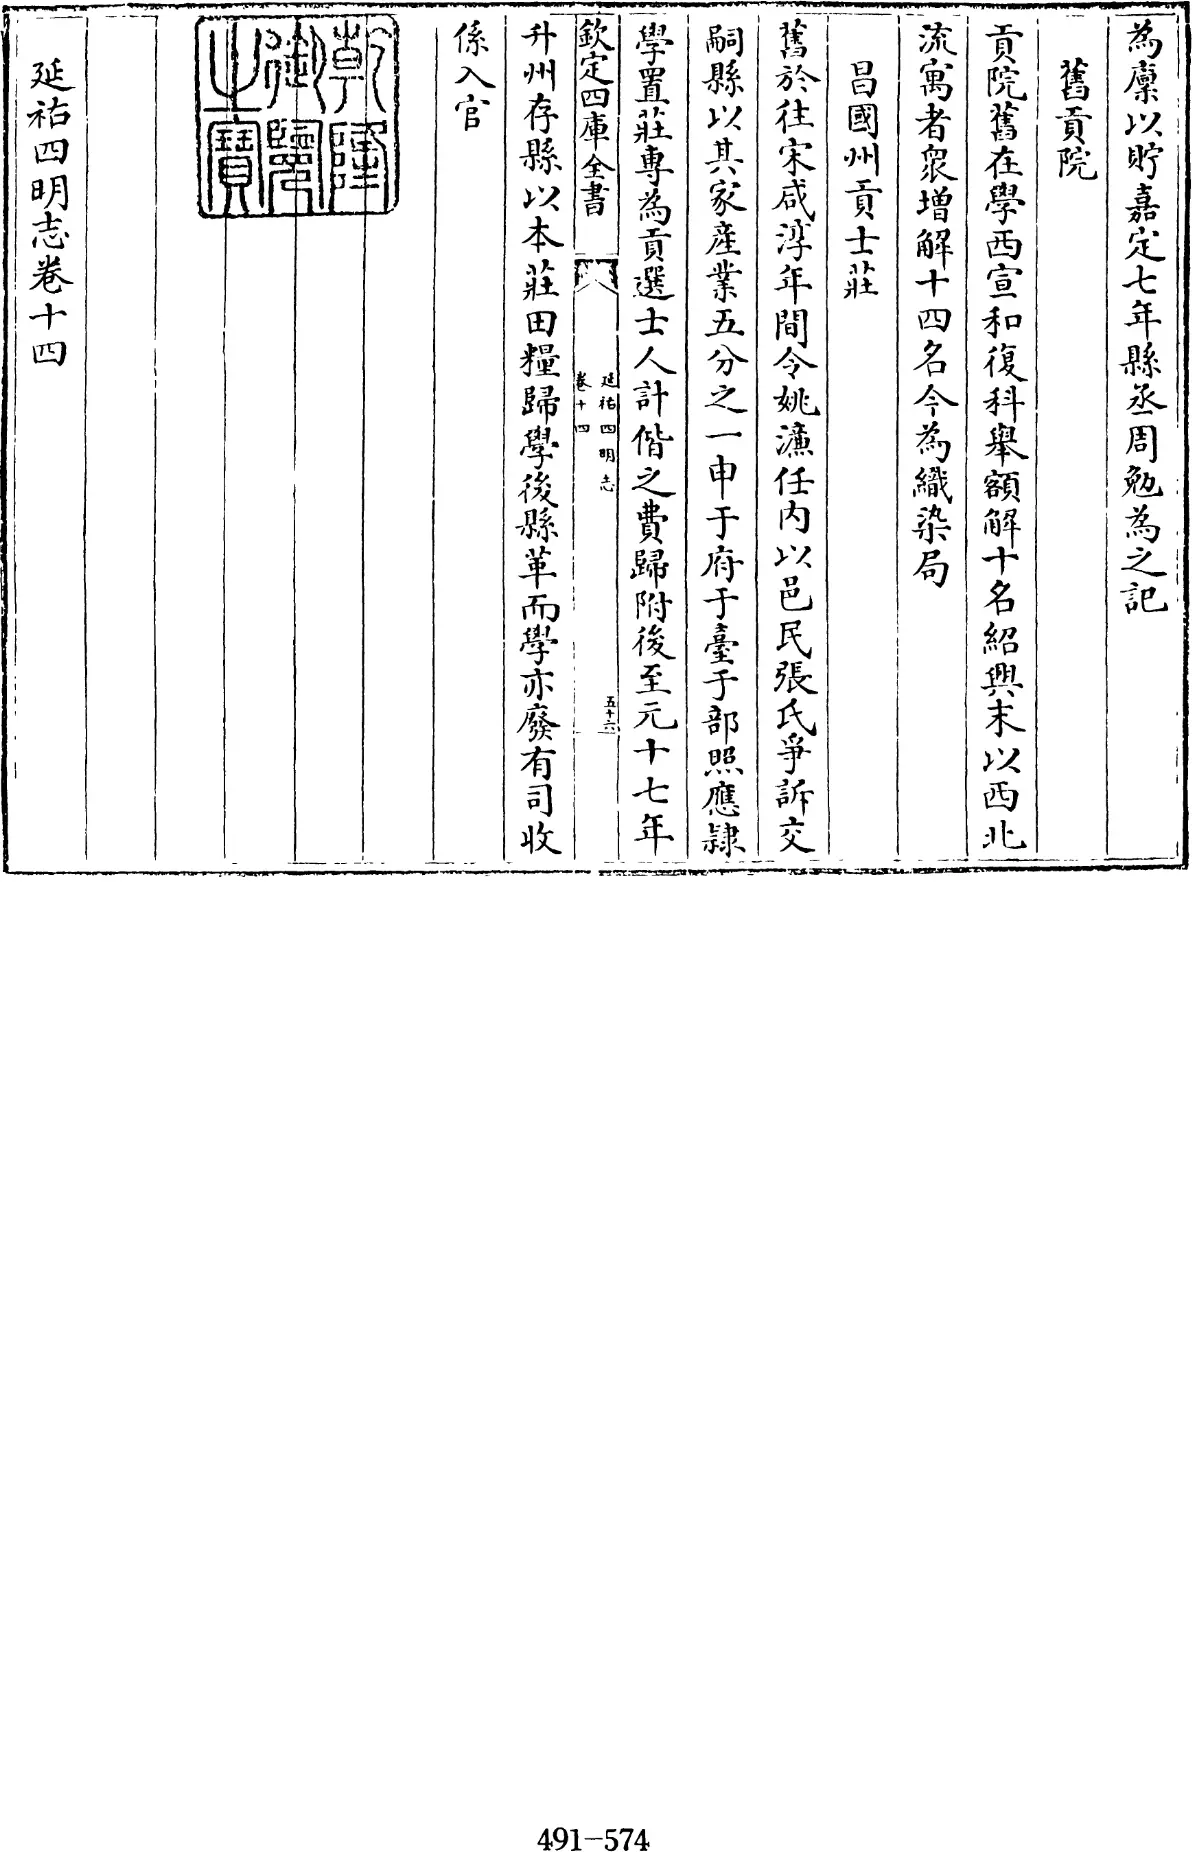 為廪以貯嘉定七年縣丞周勉為之記
舊貢院
貢院舊在學西宣和復科舉額解十名紹興末以西北
流寓者衆增解十四名今為織染局
昌國州貢士莊
舊於往宋咸淳年間令姚濂任内以邑民張氏爭訴交
嗣縣以其家産業五分之一申于府于臺于部照應隷
學置莊專為貢選士人計偕之費歸附後至元十七年
欽定四庫全書
延祐四明志
卷十四
五十六
升州存縣以本莊田糧歸學後縣革而學亦廢有司收
係入官
乾隆
御覽
之寶
延祐四明志卷十四
491-574